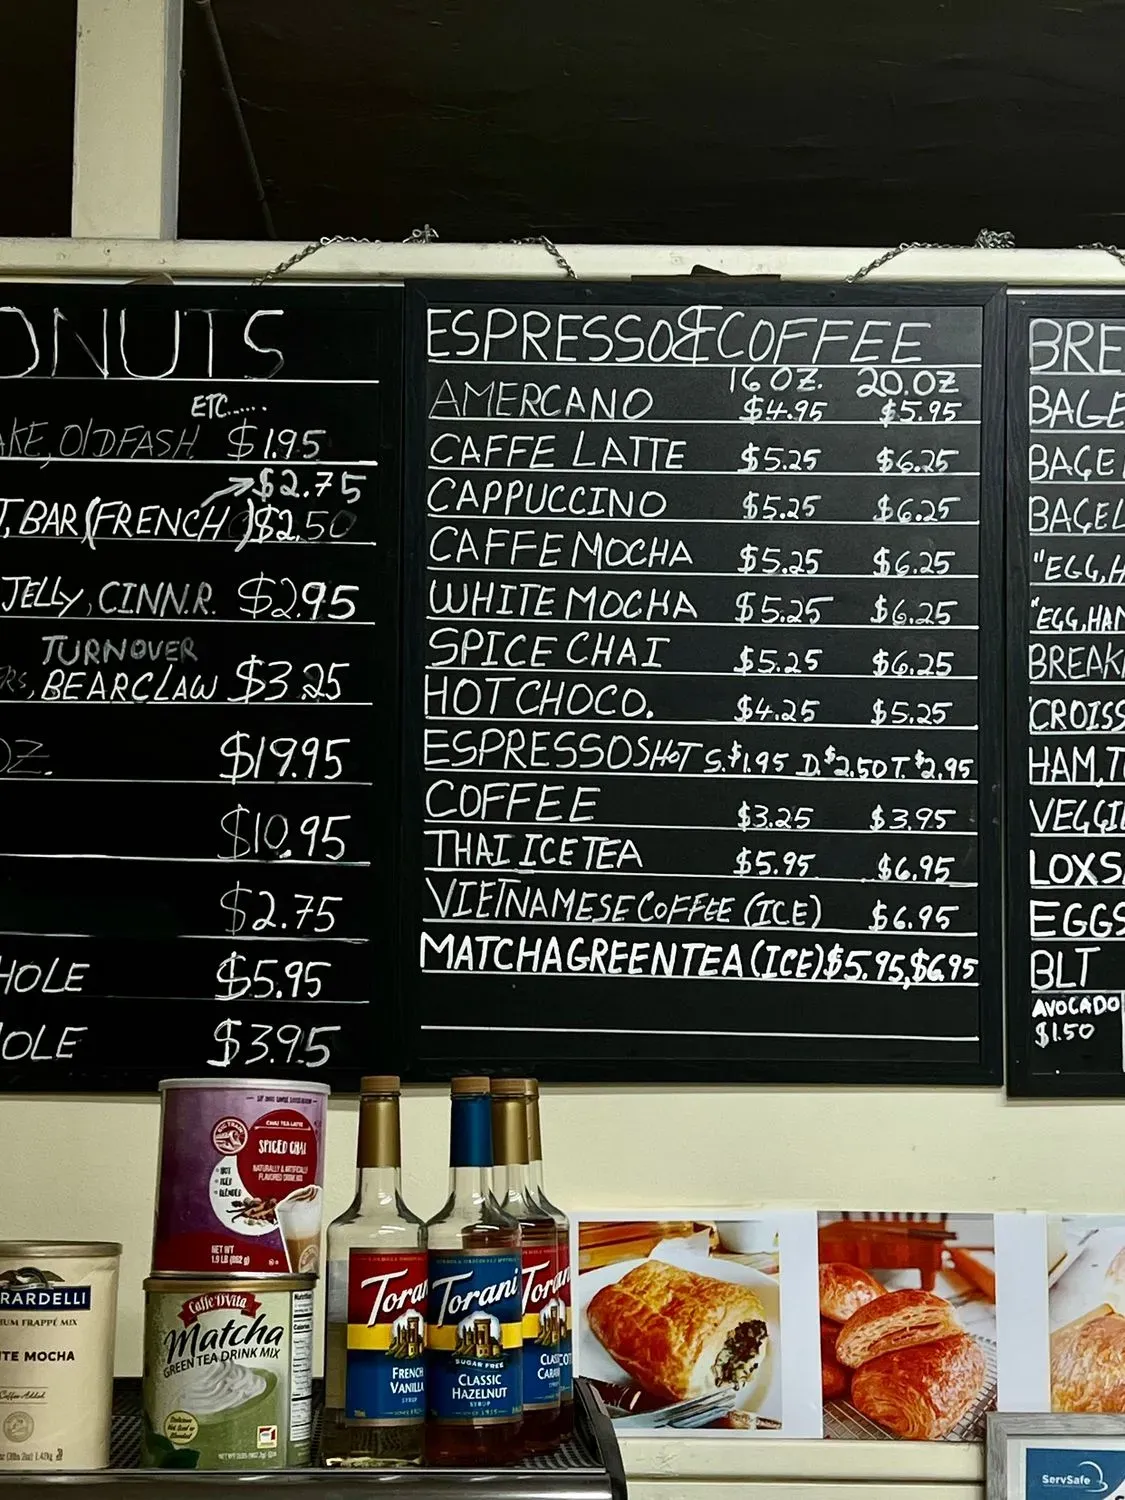 ONUTS
ETC.....
AKE, OLDFASH $1.95
$2.75
T, BAR (FRENCH) $2.50
JELLY, CINN.R. $2.95
TURNOVER
ERS, BEARCLAW $3.25
OZ. $19.95
$10.95
$2.75
HOLE $5.95
HOLE $3.95
ESPRESSO & COFFEE
16 OZ. 20.OZ
AMERCANO $4.95 $5.95
CAFFE LATTE $5.25 $6.25
CAPPUCCINO $5.25 $6.25
CAFFE MOCHA $5.25 $6.25
WHITE MOCHA $5.25 $6.25
SPICE CHAI $5.25 $6.25
HOT CHOCO. $4.25 $5.25
ESPRESSO SHOT S.$1.95 D.$2.50 T.$2.95
COFFEE $3.25 $3.95
THAI ICE TEA $5.95 $6.95
VIETNAMESE COFFEE (ICE) $6.95
MATCHA GREEN TEA (ICE) $5.95, $6.95
BRE
BAGE
BAGE
BAGEL
"EGG, H
"EGG, HAM
BREAK
CROISS
HAM, T
VEGGI
LOX S
EGGS
BLT
AVOCADO
$1.50
CHAI TEA LATTE
SPICED CHAI
NATURALLY & ARTIFICIALLY
FLAVORED DRINK MIX
HOT
ICED
BLENDED
NET WT
1.9 LB (862 g)
RARDELLI
UM FRAPPÉ MIX
ITE MOCHA
Coffee Added
Caffe D'Vita
Matcha
GREEN TEA DRINK MIX
Delicious
Hot, Iced or
Blended
Torani
FRENCH
VANILLA
SYRUP
Torani
SUGAR FREE
CLASSIC
HAZELNUT
SYRUP
Torani
CLASSIC
CARAM
ServSafe